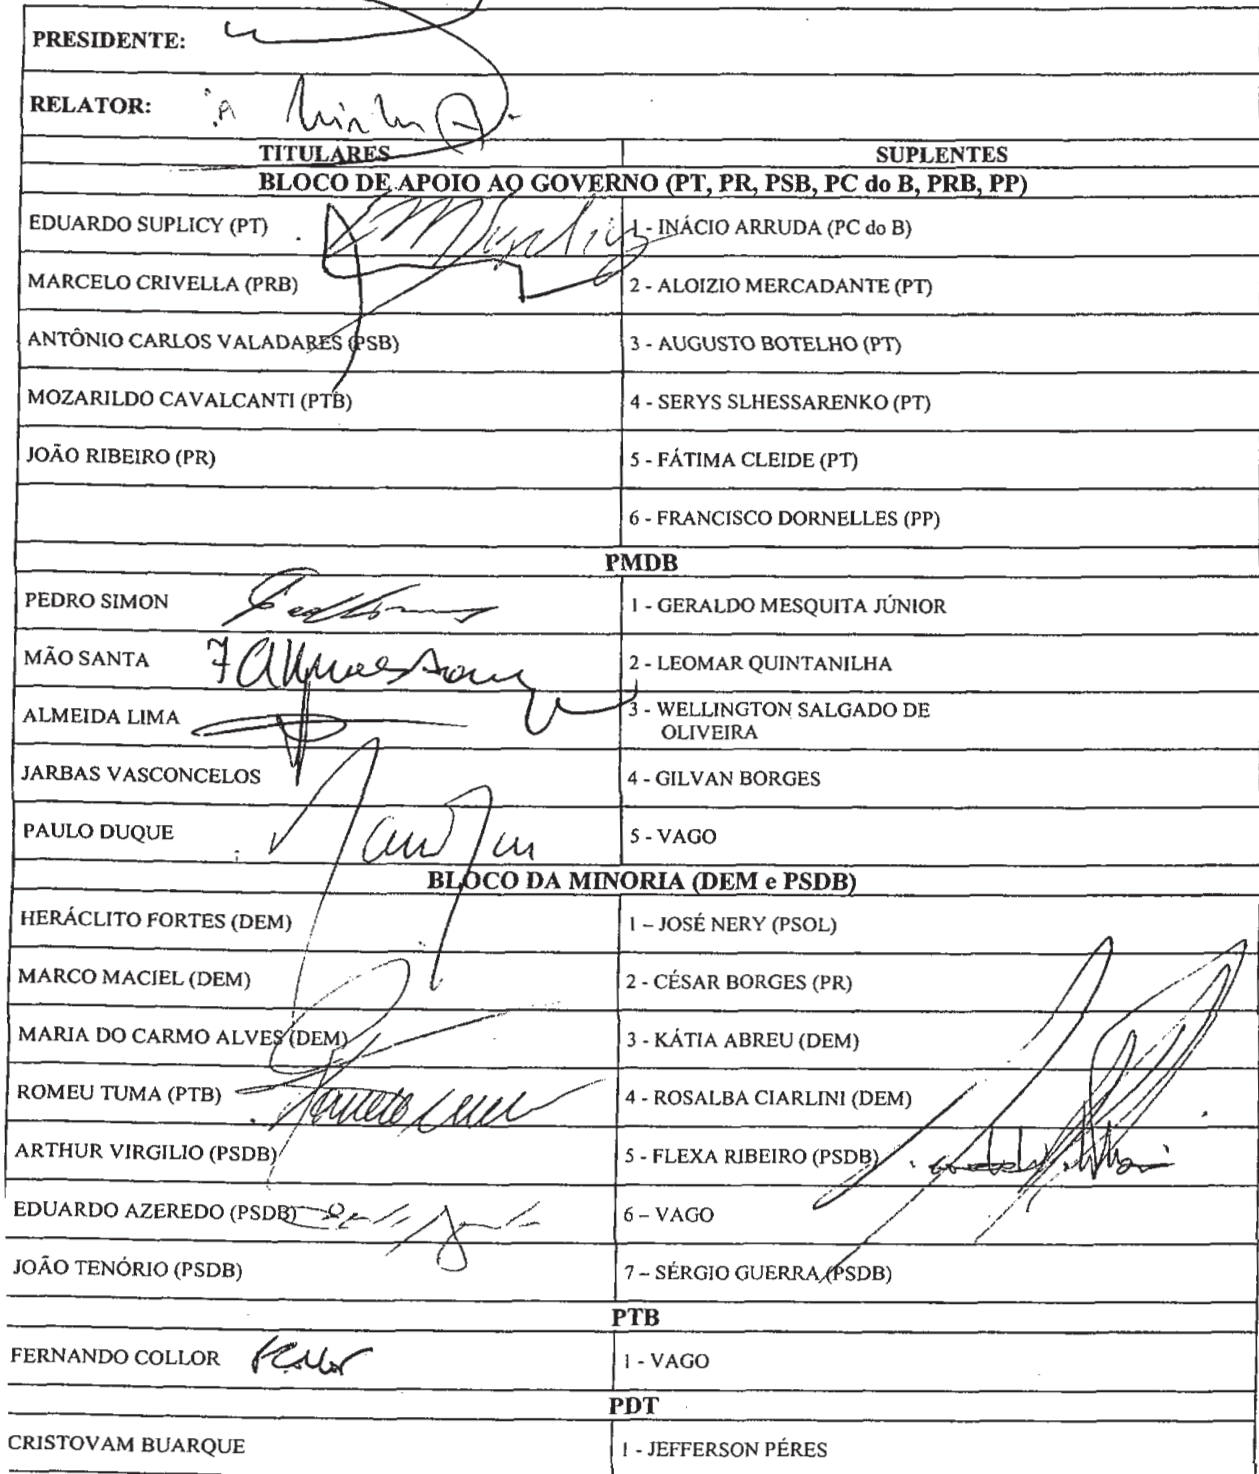 PRESIDENTE:
RELATOR:
TITULARES SUPLENTES
BLOCO DE APOIO AO GOVERNO (PT, PR, PSB, PC do B, PRB, PP)
EDUARDO SUPLICY (PT) 1 - INÁCIO ARRUDA (PC do B)
MARCELO CRIVELLA (PRB) 2 - ALOIZIO MERCADANTE (PT)
ANTÔNIO CARLOS VALADARES (PSB) 3 - AUGUSTO BOTELHO (PT)
MOZARILDO CAVALCANTI (PTB) 4 - SERYS SLHESSARENKO (PT)
JOÃO RIBEIRO (PR) 5 - FÁTIMA CLEIDE (PT)
6 - FRANCISCO DORNELLES (PP)
PMDB
PEDRO SIMON 1 - GERALDO MESQUITA JÚNIOR
MÃO SANTA 2 - LEOMAR QUINTANILHA
ALMEIDA LIMA 3 - WELLINGTON SALGADO DE
OLIVEIRA
JARBAS VASCONCELOS 4 - GILVAN BORGES
PAULO DUQUE 5 - VAGO
BLOCO DA MINORIA (DEM e PSDB)
HERÁCLITO FORTES (DEM) 1 – JOSÉ NERY (PSOL)
MARCO MACIEL (DEM) 2 - CÉSAR BORGES (PR)
MARIA DO CARMO ALVES (DEM) 3 - KÁTIA ABREU (DEM)
ROMEU TUMA (PTB) 4 - ROSALBA CIARLINI (DEM)
ARTHUR VIRGILIO (PSDB) 5 - FLEXA RIBEIRO (PSDB)
EDUARDO AZEREDO (PSDB) 6 – VAGO
JOÃO TENÓRIO (PSDB) 7 – SÉRGIO GUERRA (PSDB)
PTB
FERNANDO COLLOR FCollor 1 - VAGO
PDT
CRISTOVAM BUARQUE 1 - JEFFERSON PÉRES